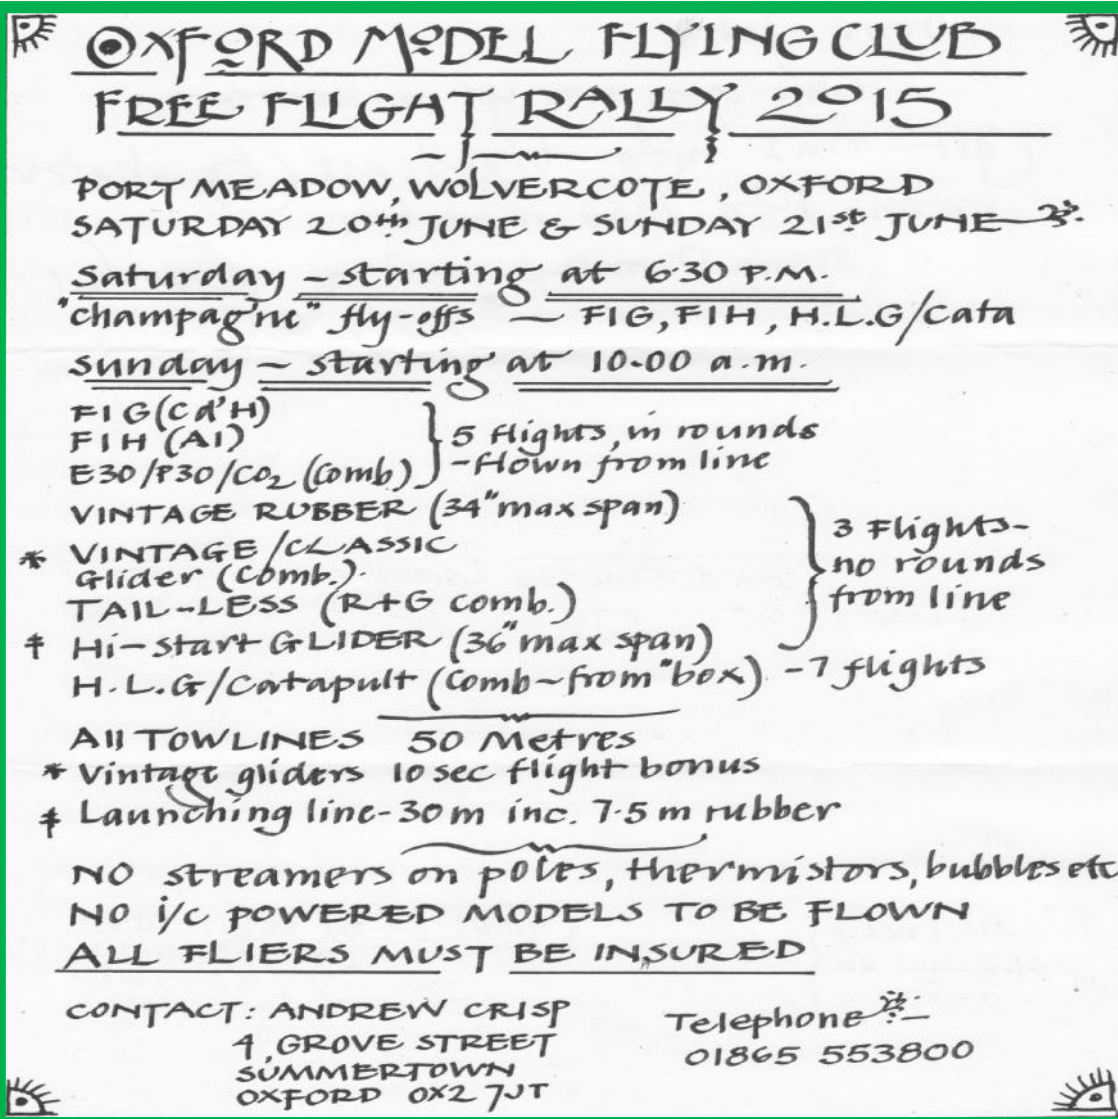 OXFORD MODEL FLYING CLUB
FREE FLIGHT RALLY 2015
PORT MEADOW, WOLVERCOTE, OXFORD
SATURDAY 20th JUNE & SUNDAY 21st JUNE
Saturday - starting at 6·30 P.M.
"champagne" fly-offs — F1G, F1H, H.L.G/Cata
Sunday - starting at 10·00 a.m.
F1G (Cd'H)
F1H (A1)
E30/P30/CO₂ (Comb)
5 flights, in rounds
- flown from line
VINTAGE RUBBER (34" max span)
* VINTAGE/CLASSIC
Glider (Comb.).
TAIL-LESS (R+G comb.)
‡ Hi-start GLIDER (36" max span)
3 Flights-
no rounds
from line
H.L.G/Catapult (Comb - from "box) - 7 flights
All TOWLINES 50 Metres
* Vintage gliders 10 sec flight bonus
‡ Launching line - 30m inc. 7·5m rubber
NO streamers on poles, thermistors, bubbles etc
NO i/c POWERED MODELS TO BE FLOWN
ALL FLIERS MUST BE INSURED
CONTACT: ANDREW CRISP
4, GROVE STREET
SUMMERTOWN
OXFORD OX2 7JT
Telephone
01865 553800